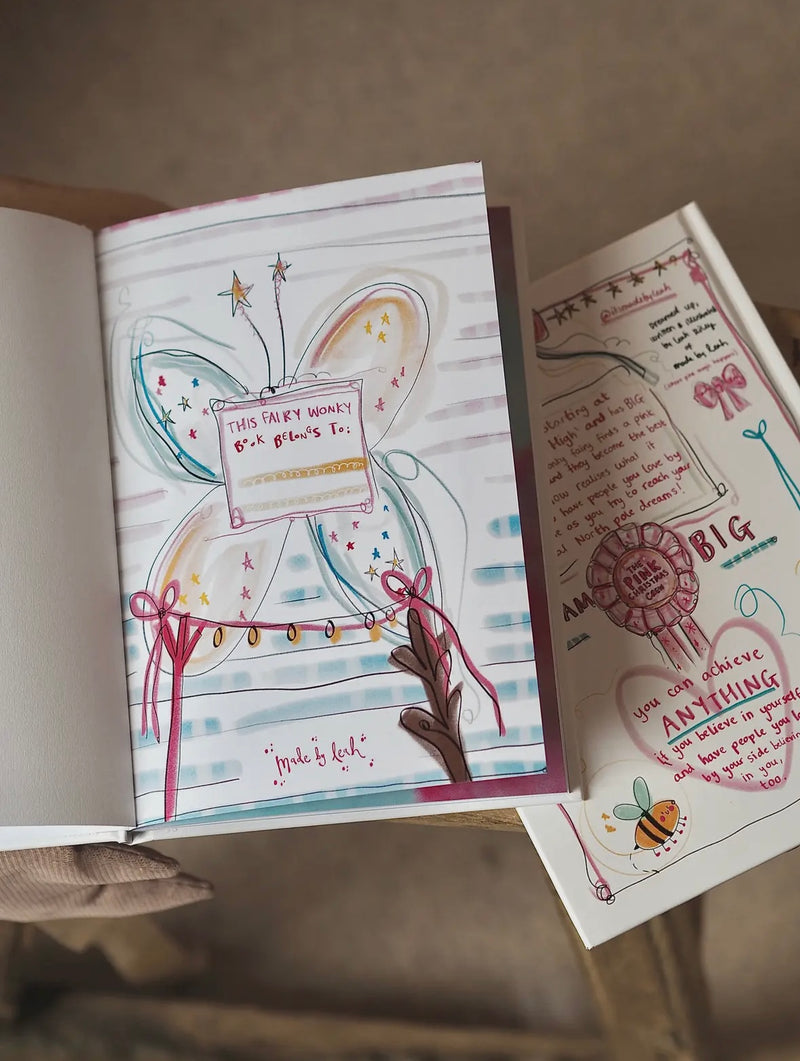 THIS FAIRY WONKY
BOOK BELONGS TO:
Made by Leah
@itsmadebyleah
Dreamed up,
written & illustrated
by Leah
made by Leah
starting at
High' and has BIG
only fairy finds a pink
and they become the best
ow realises what it
have people you love by
e as you try to reach your
North pole dreams!
BIG
AM
THE
PINK
CHRISTMAS
COON
you can achieve
ANYTHING
if you believe in yourself
and have people you lo
by your side believing
in you,
too.